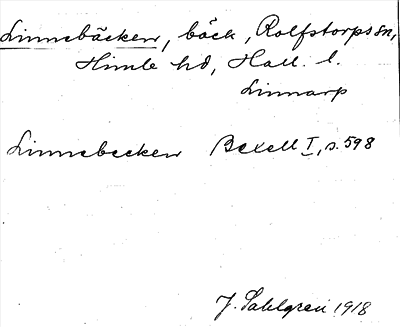 Linnebäcken, bäck, Rolfstorps sn,
Himle hd, Hall. l.
Linnarp
Linnebecken Bexell I, s. 598
J. Sahlgren 1918